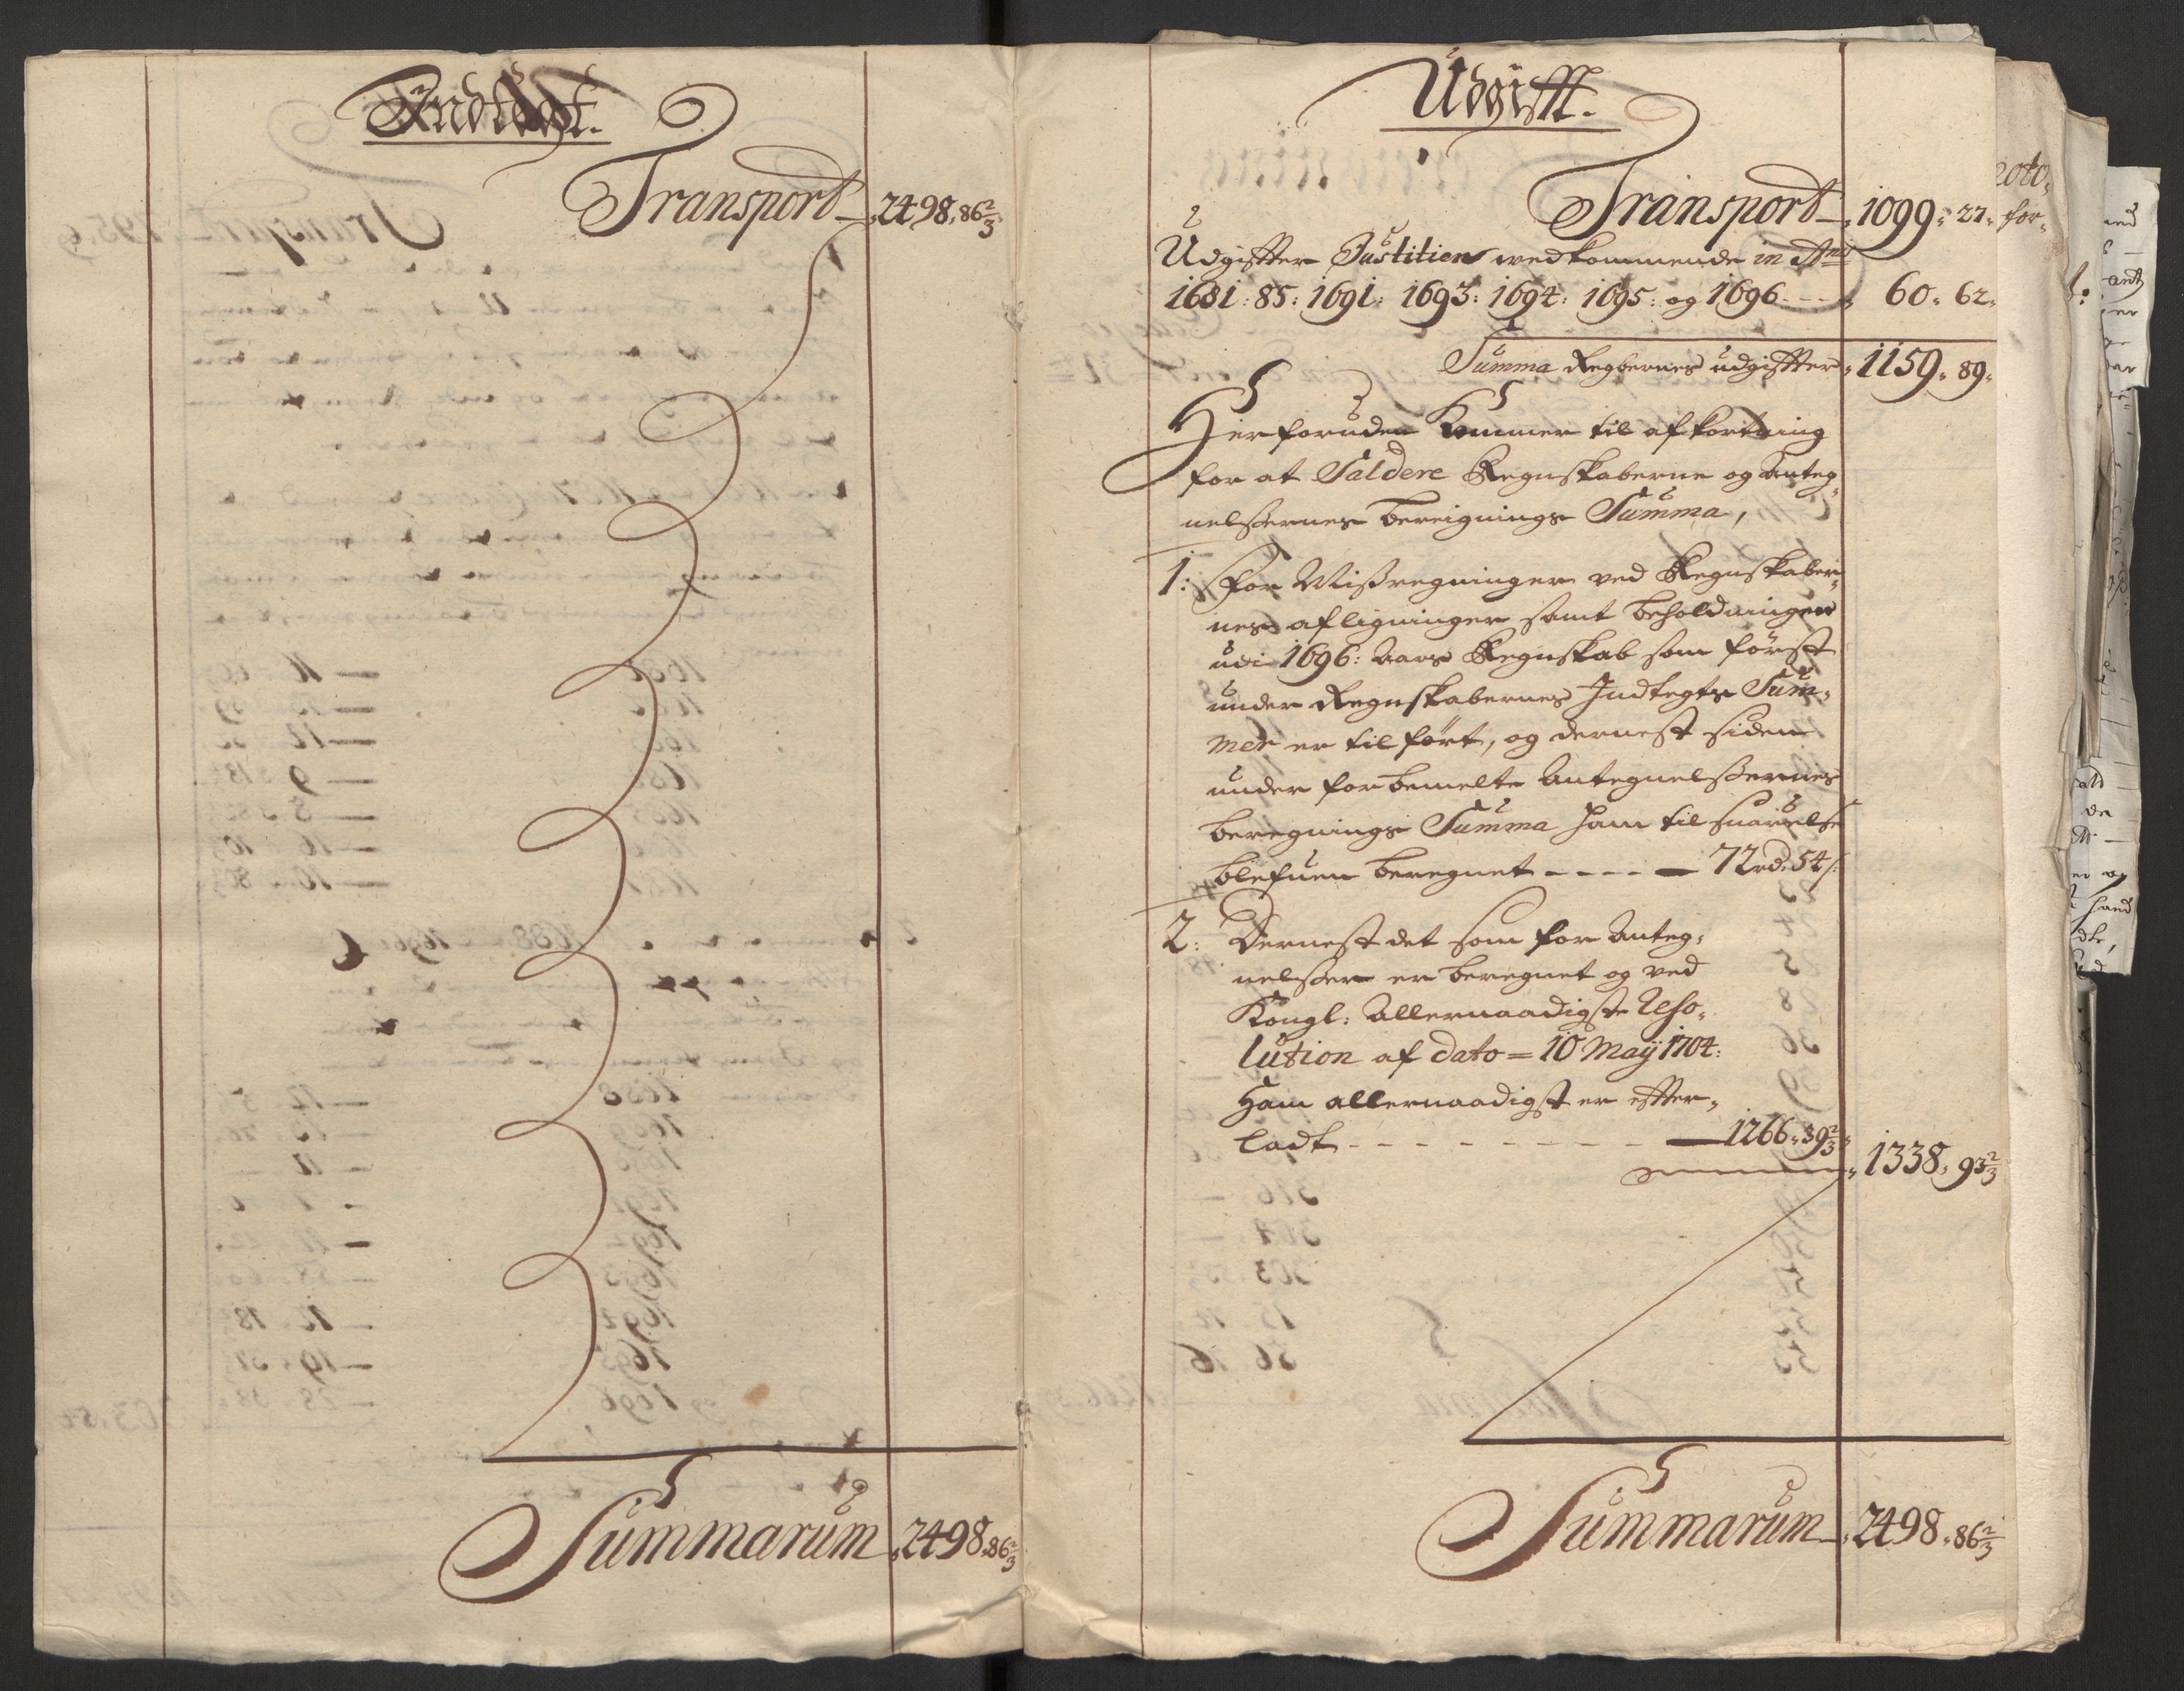 Indtegt.
Transport 2498. 86 2/3.
Summarum 2498. 86 2/3
Udgifft.
Transport 1099. 27.
Udgiffter Justitien wedkommende in Anno
1681: 85: 1691: 1693: 1694: 1695: og 1696 - - - 60. 62.
Summa Regbernes udgiffter 1159. 89.
Herforuden kommer til afkortning
for at Saldere Regnskaberne og Anteg„
nelsernes bereignings Summa,
1: For Misregninger ved Regnskaber„
nes afligninger samt beholdningen
udi 1696: Aars Regnskab som først
under Regnskabernes Indtegts Sum„
mer er tilført, og dernest siden
under forbemelte Antegnelsernes
beregnings Summa ham til suarelse
blefuen beregnet - - - - 72rd. 54 s:
2: Dernest det som for Anteg„
nelser er beregnet og ved
Kongl: Allernaadigste Reso„
lution af dato = 10 Maÿ 1704:
Ham allernaadigst er efter„
ladt - - - - - - - - 1266. 39 2/3
1338. 93 2/3
Summarum 2498. 86 2/3